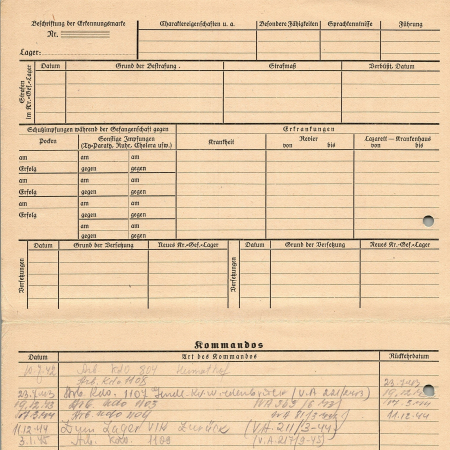 Beschriftung der Erkennungsmarke
Nr.
Lager:
Charaktereigenschaften u. a.
Besondere Fähigkeiten
Sprachkenntnisse
Führung
Strafen im Kr.-Gef.-Lager
Datum
Grund der Bestrafung
Strafmaß
Verbüßt, Datum
Schutzimpfungen während der Gefangenschaft gegen
Erkrankungen
Pocken
Sonstige Impfungen
(Ty-Paraty, Ruhr, Cholera usw.)
Krankheit
Revier
von bis
Lazarett – Krankenhaus
von bis
am am am
Erfolg gegen gegen
am am am
Erfolg gegen gegen
am am am
Erfolg gegen gegen
am am
gegen gegen
Versetzungen
Datum
Grund der Versetzung
Neues Kr.-Gef.-Lager
Versetzungen
Datum
Grund der Versetzung
Neues Kr.-Gef.-Lager
Kommandos
Datum
Art des Kommandos
Rückfahrdatum
Arb. Kdo 804
Arb. Kdo 1108 23.7.43
23.7.43 Arb. Kdo. 1107 19.12.43
19.12.43 Arb. Kdo 1103
Arb. Kdo 1104 11.12.44
11.12.44 Zum Lager VIII zurück (V.A. 211/3-44)
3.1.45 Arb. Kdo. 1108 (V.A. 217/3-45)